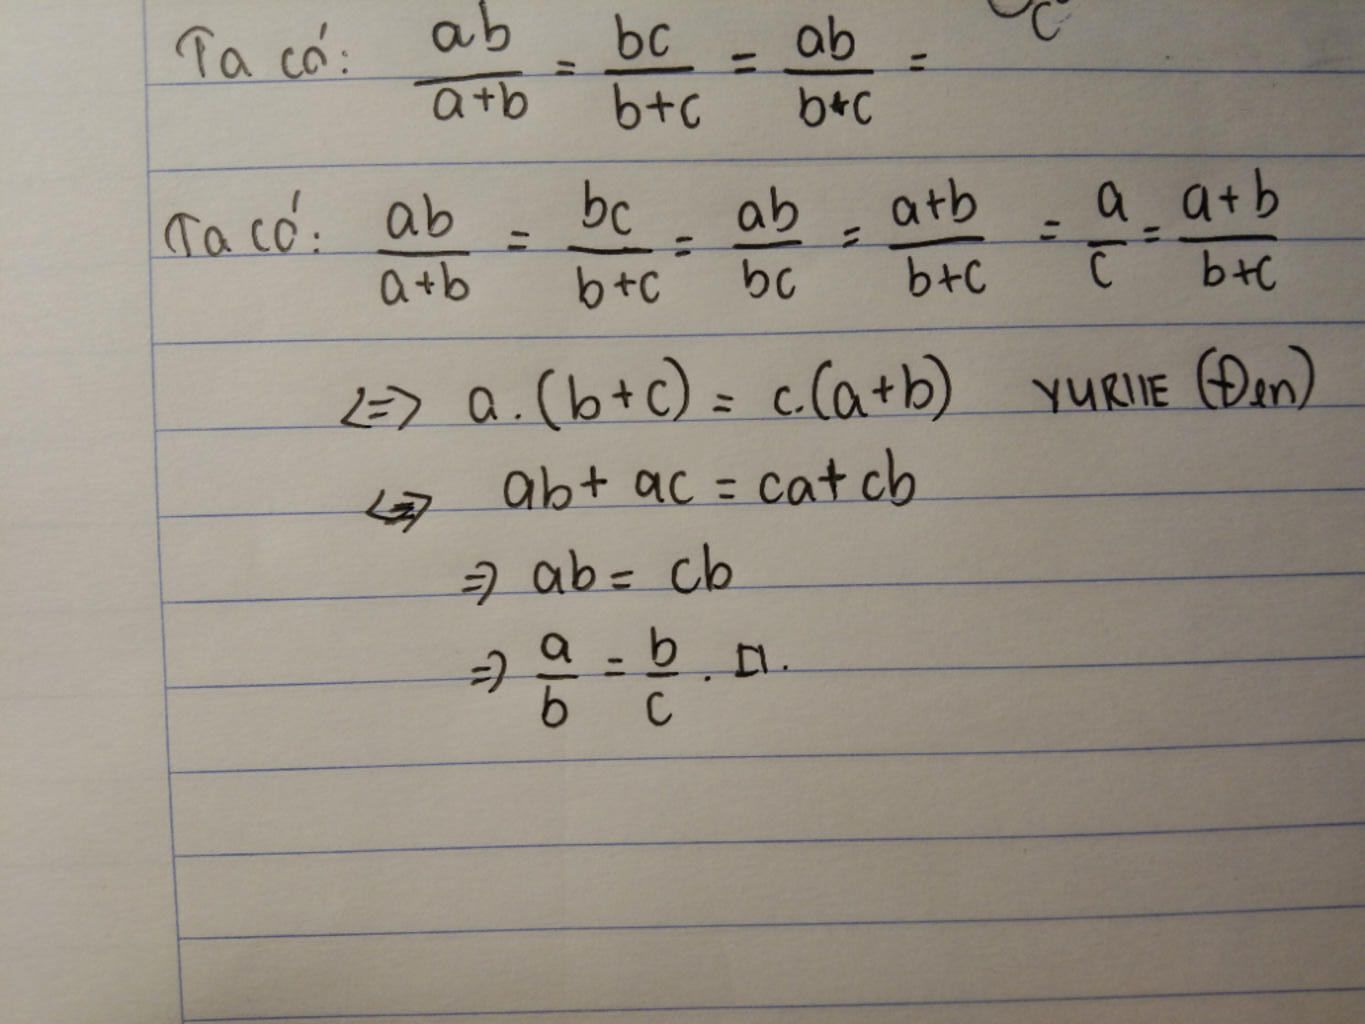 c
Ta có: ab/(a+b) = bc/(b+c) = ab/(b+c) =
Ta có: ab/(a+b) = bc/(b+c) = ab/bc = (a+b)/(b+c) = a/c = (a+b)/(b+c)
<=> a.(b+c) = c.(a+b) YURIIE (Đen)
<=> ab + ac = ca + cb
=> ab = cb
=> a/b = b/c . □.